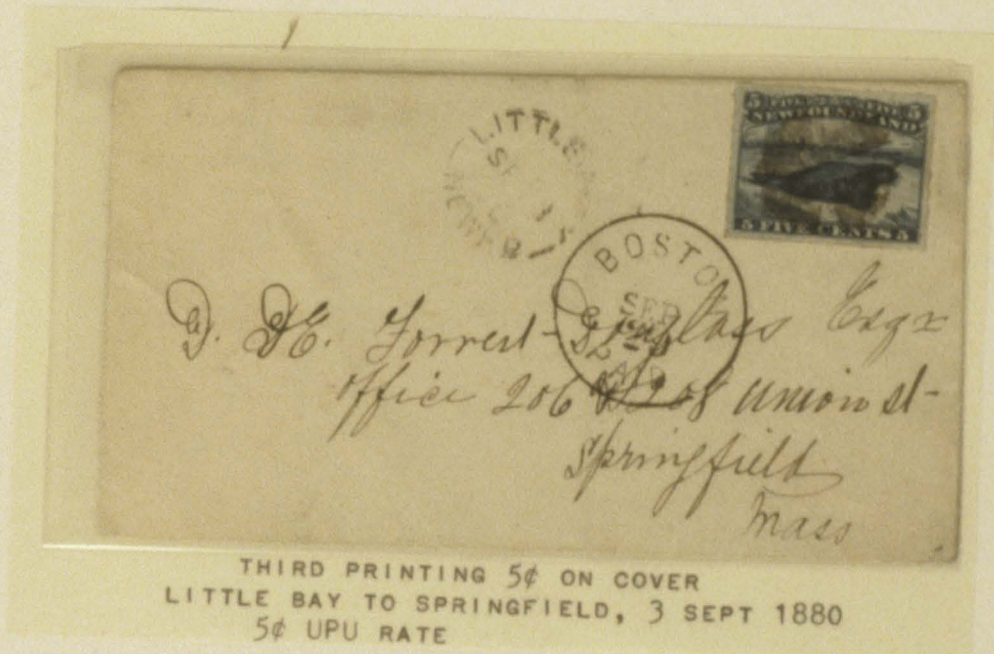 5 FIVE CENTS FIVE 5
NEWFOUNDLAND
5 FIVE CENTS 5
LITTLE
BOSTON
SEP
PAID
Forrest Esqr
Office 206 208 Union St
Springfield
Mass
THIRD PRINTING 5¢ ON COVER
LITTLE BAY TO SPRINGFIELD, 3 SEPT 1880
5¢ UPU RATE